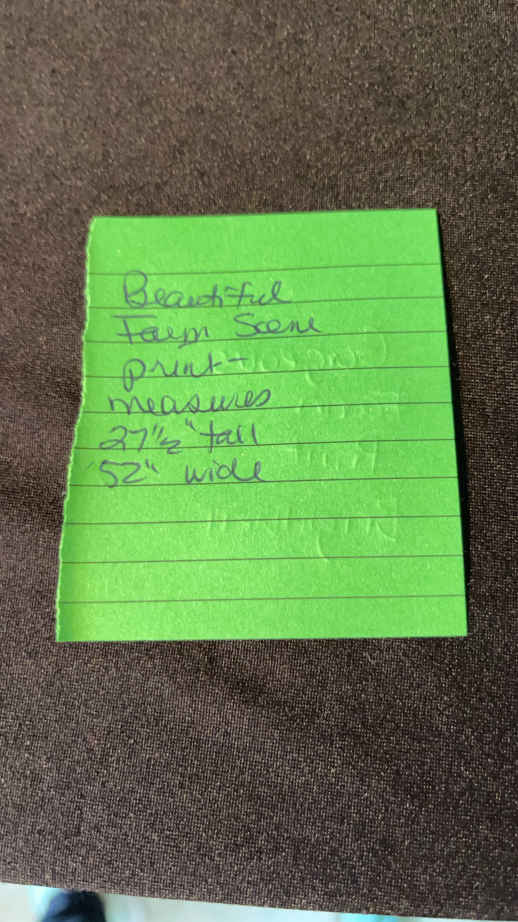 Beautiful
Farm Scene
print -
measures
27 1/2" tall
52" wide